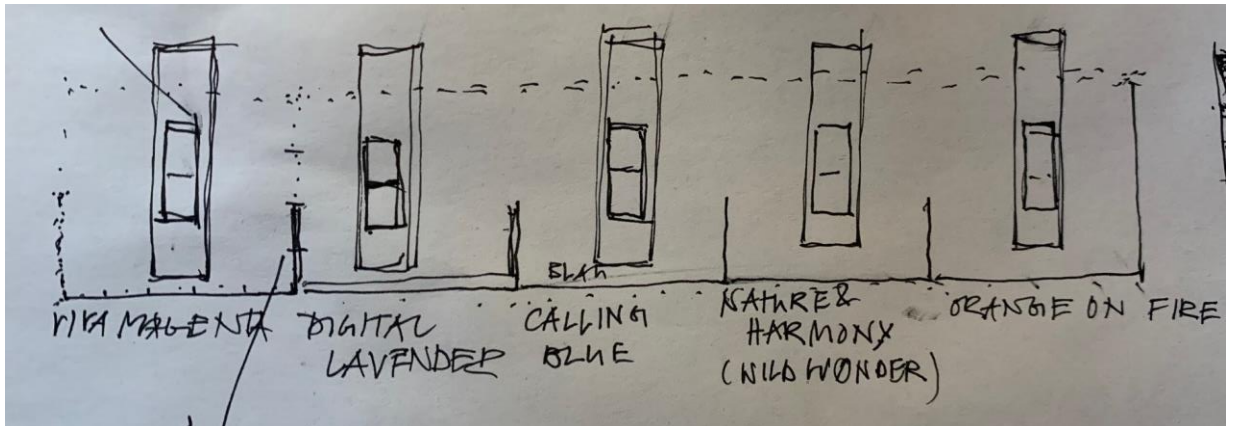 BLAH
VIVA MAGENTA
DIGITAL
LAVENDER
CALLING
BLUE
NATURE &
HARMONY
(WILD WONDER)
ORANGE ON FIRE